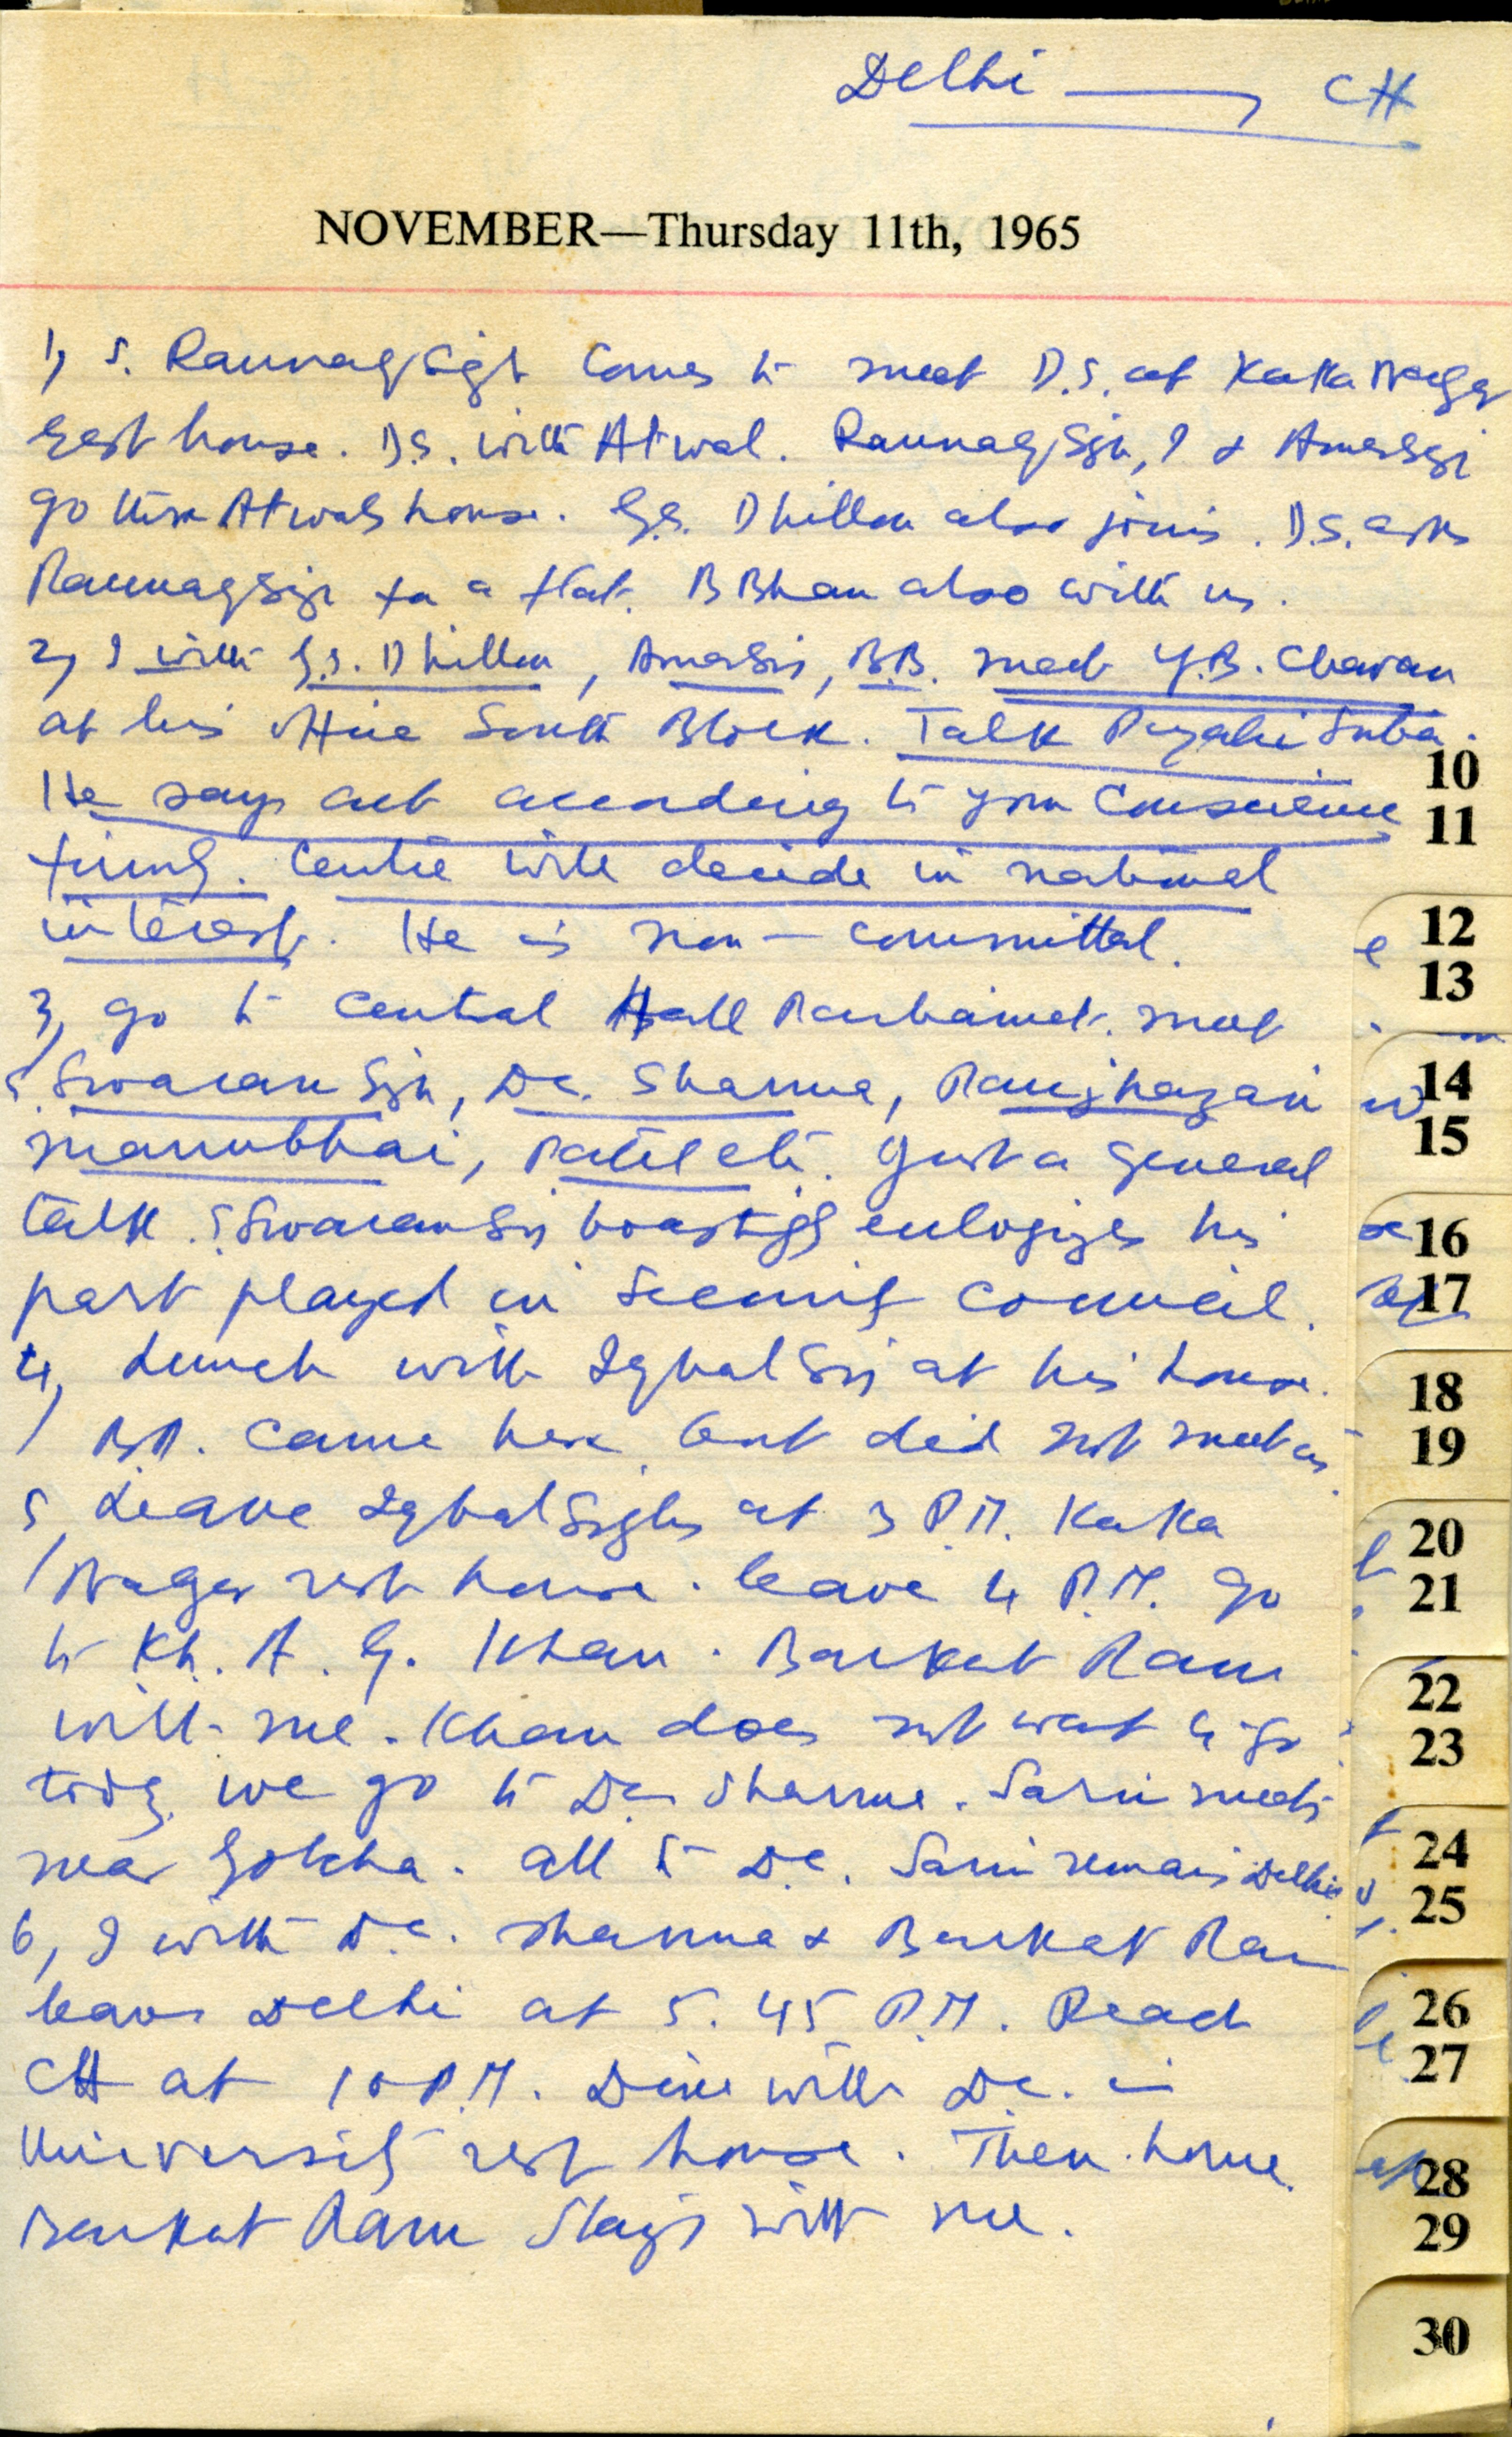 Delhi → CH
NOVEMBER—Thursday 11th, 1965
1) S. Raunaq Sigh Comes to meet D.S. at Kaka Nagar
rest house. D.S. with Atwal. Raunaq Sigh, I & Amar
go to Atwals house. G.S. Dhillon also joins. D.S. asks
Raunaq for a flat. B Bhan also with us.
2) I with G.S. Dhillon, B.B. meet Y.B. Chavan
at his office South Block. Talk Punjabi Suba.
He says act according to your Conscience
firmly. Centre will decide in national
interest. He is non-committal.
3) go to Central Hall Parliament. meet
S. Swaran Sigh, D.C. Sharma,
Manubhai, Patel etc. Just a general
talk. S. Swaran eulogizes his
part played in Security Council.
4) Lunch with Iqbal at his house.
came here but did not meet us.
5) Leave Iqbal Sighs at 3 P.M. Kaka
Nagar rest house. leave 4 P.M. go
to Kh. A. G. Khan. Barkat Ram
with me. Khan does not want to go
today. we go to D.C. Sharma. Saini meets
near Golcha. all to D.C. Saini remains Delhi
6) I with D.C. Sharma & Barkat Ram
leave Delhi at 5.45 P.M. Reach
CH at 10 P.M. Dine with D.C. in
University rest house. Then home.
Barkat Ram Stays with me.
10
11
12
13
14
15
16
17
18
19
20
21
22
23
24
25
26
27
28
29
30